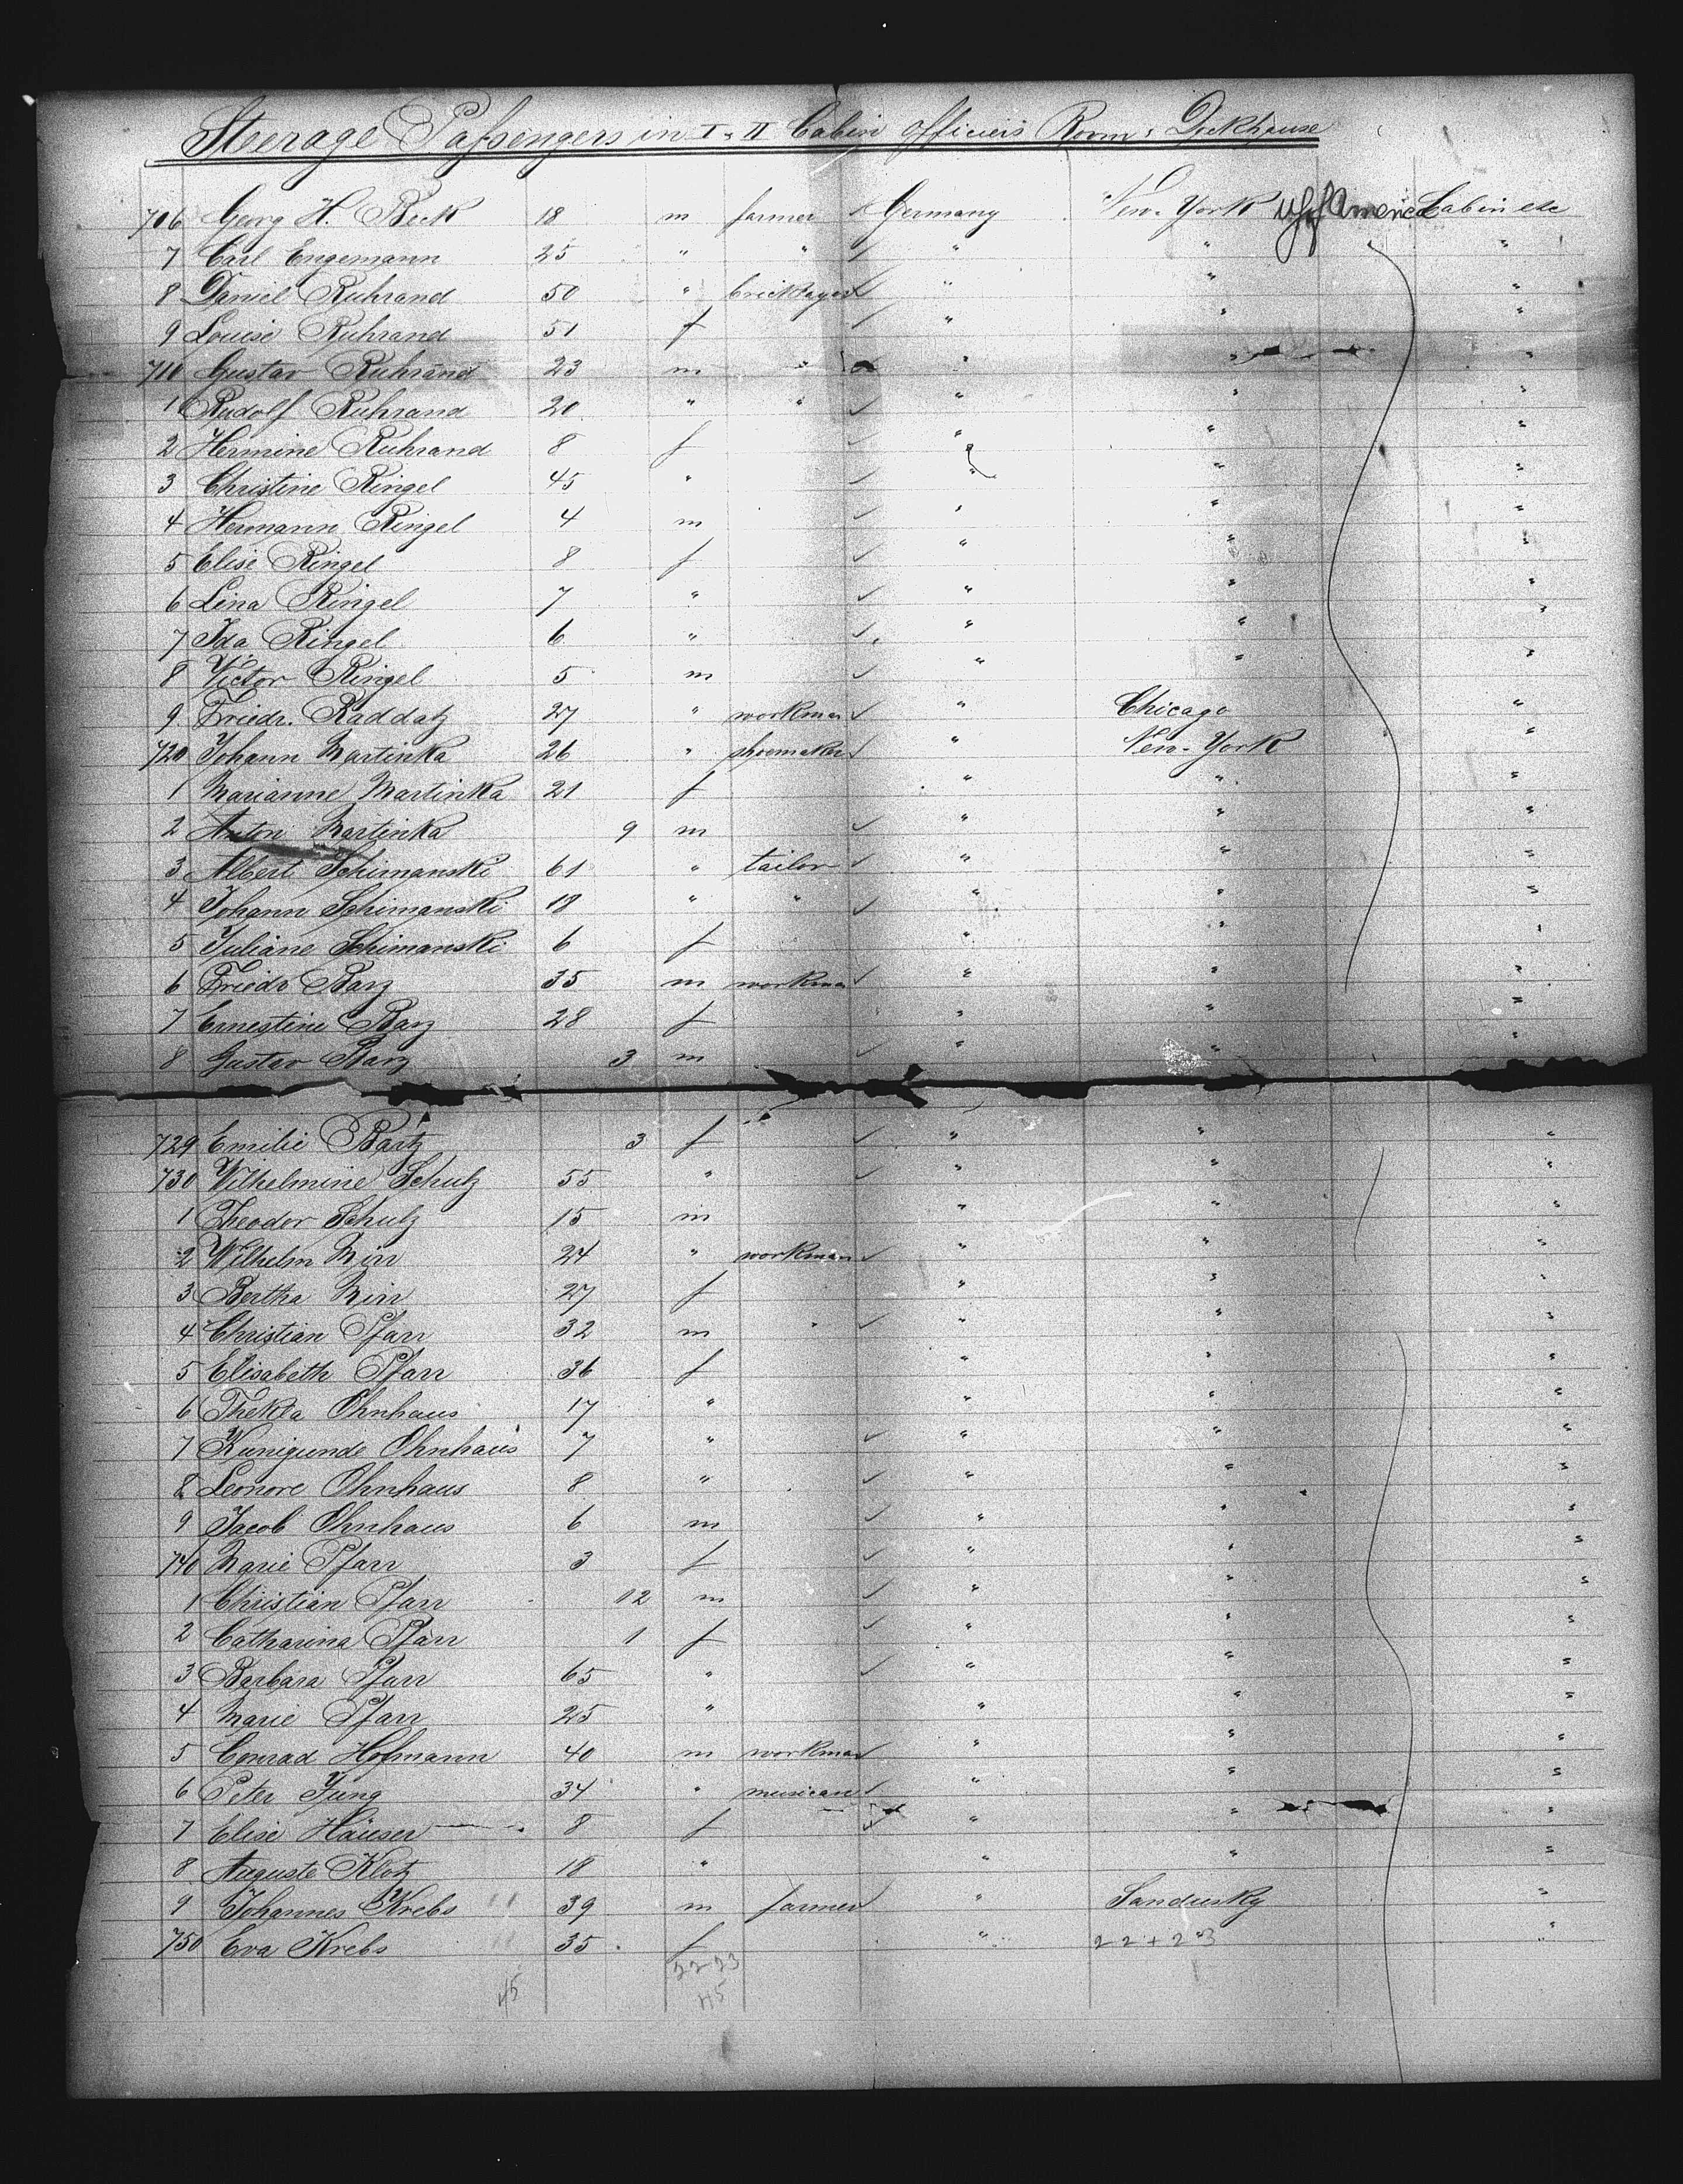 Steerage Passengers in I & II Cabin officiers Room & Deckhause
706 Georg H. Beck 18 m farmer Germany New-York U S of America Cabin etc
7 Carl Engemann 25 " " " " "
8 Daniel Ruhrand 50 " bricklayer " " "
9 Louise Ruhrand 51 f " " "
710 Gustav Ruhrand 23 m " " " "
1 Rudolf Ruhrand 20 " " " " "
2 Hermine Ruhrand 8 f " " "
3 Christine Ringel 45 " " " "
4 Hermann Ringel 4 m " " "
5 Elise Ringel 8 f " " "
6 Lina Ringel 7 " " " "
7 Ida Ringel 6 " " " "
8 Victor Ringel 5 m " " "
9 Friedr. Raddatz 27 " workman " Chicago "
720 Johann Martinka 26 " shoemaker " New-York "
1 Marianne Martinka 21 f " " "
2 Anton Martinka 9 m " " "
3 Albert Schimanski 61 " tailor " " "
4 Johann Schimanski 18 " " " " "
5 Juliane Schimanski 6 f " " "
6 Friedr Barz 35 m workman " " "
7 Ernestine Barz 28 f " " "
8 Gustav Barz 3 m " " "
729 Emilie Bartz 3 f " " "
730 Wilhelmine Schulz 55 " " " "
1 Theodor Schulz 15 m " " "
2 Wilhelm 24 " workman " " "
3 Bertha 27 f " " "
4 Christian Pfarr 32 m " " " "
5 Elisabeth Pfarr 36 f " " "
6 Thekla Ohnhaus 17 " " " "
7 Kunigunde Ohnhaus 7 " " " "
8 Leonore Ohnhaus 8 " " " "
9 Jacob Ohnhaus 6 m " " "
740 Marie Pfarr 3 f " " "
1 Christian Pfarr 12 m " " "
2 Catharina Pfarr 1 f " " "
3 Barbara Pfarr 65 " " " "
4 Marie Pfarr 25 " " " "
5 Conrad Hofmann 40 m workman " " "
6 Peter Jung 34 " musican " " "
7 Elise Häuser 8 f " " "
8 Auguste Klotz 18 " " " "
9 Johannes Krebs 11 39 m farmer " Sandusky "
750 Eva Krebs 11 35 f " 22 + 23 "
22 23
45 45